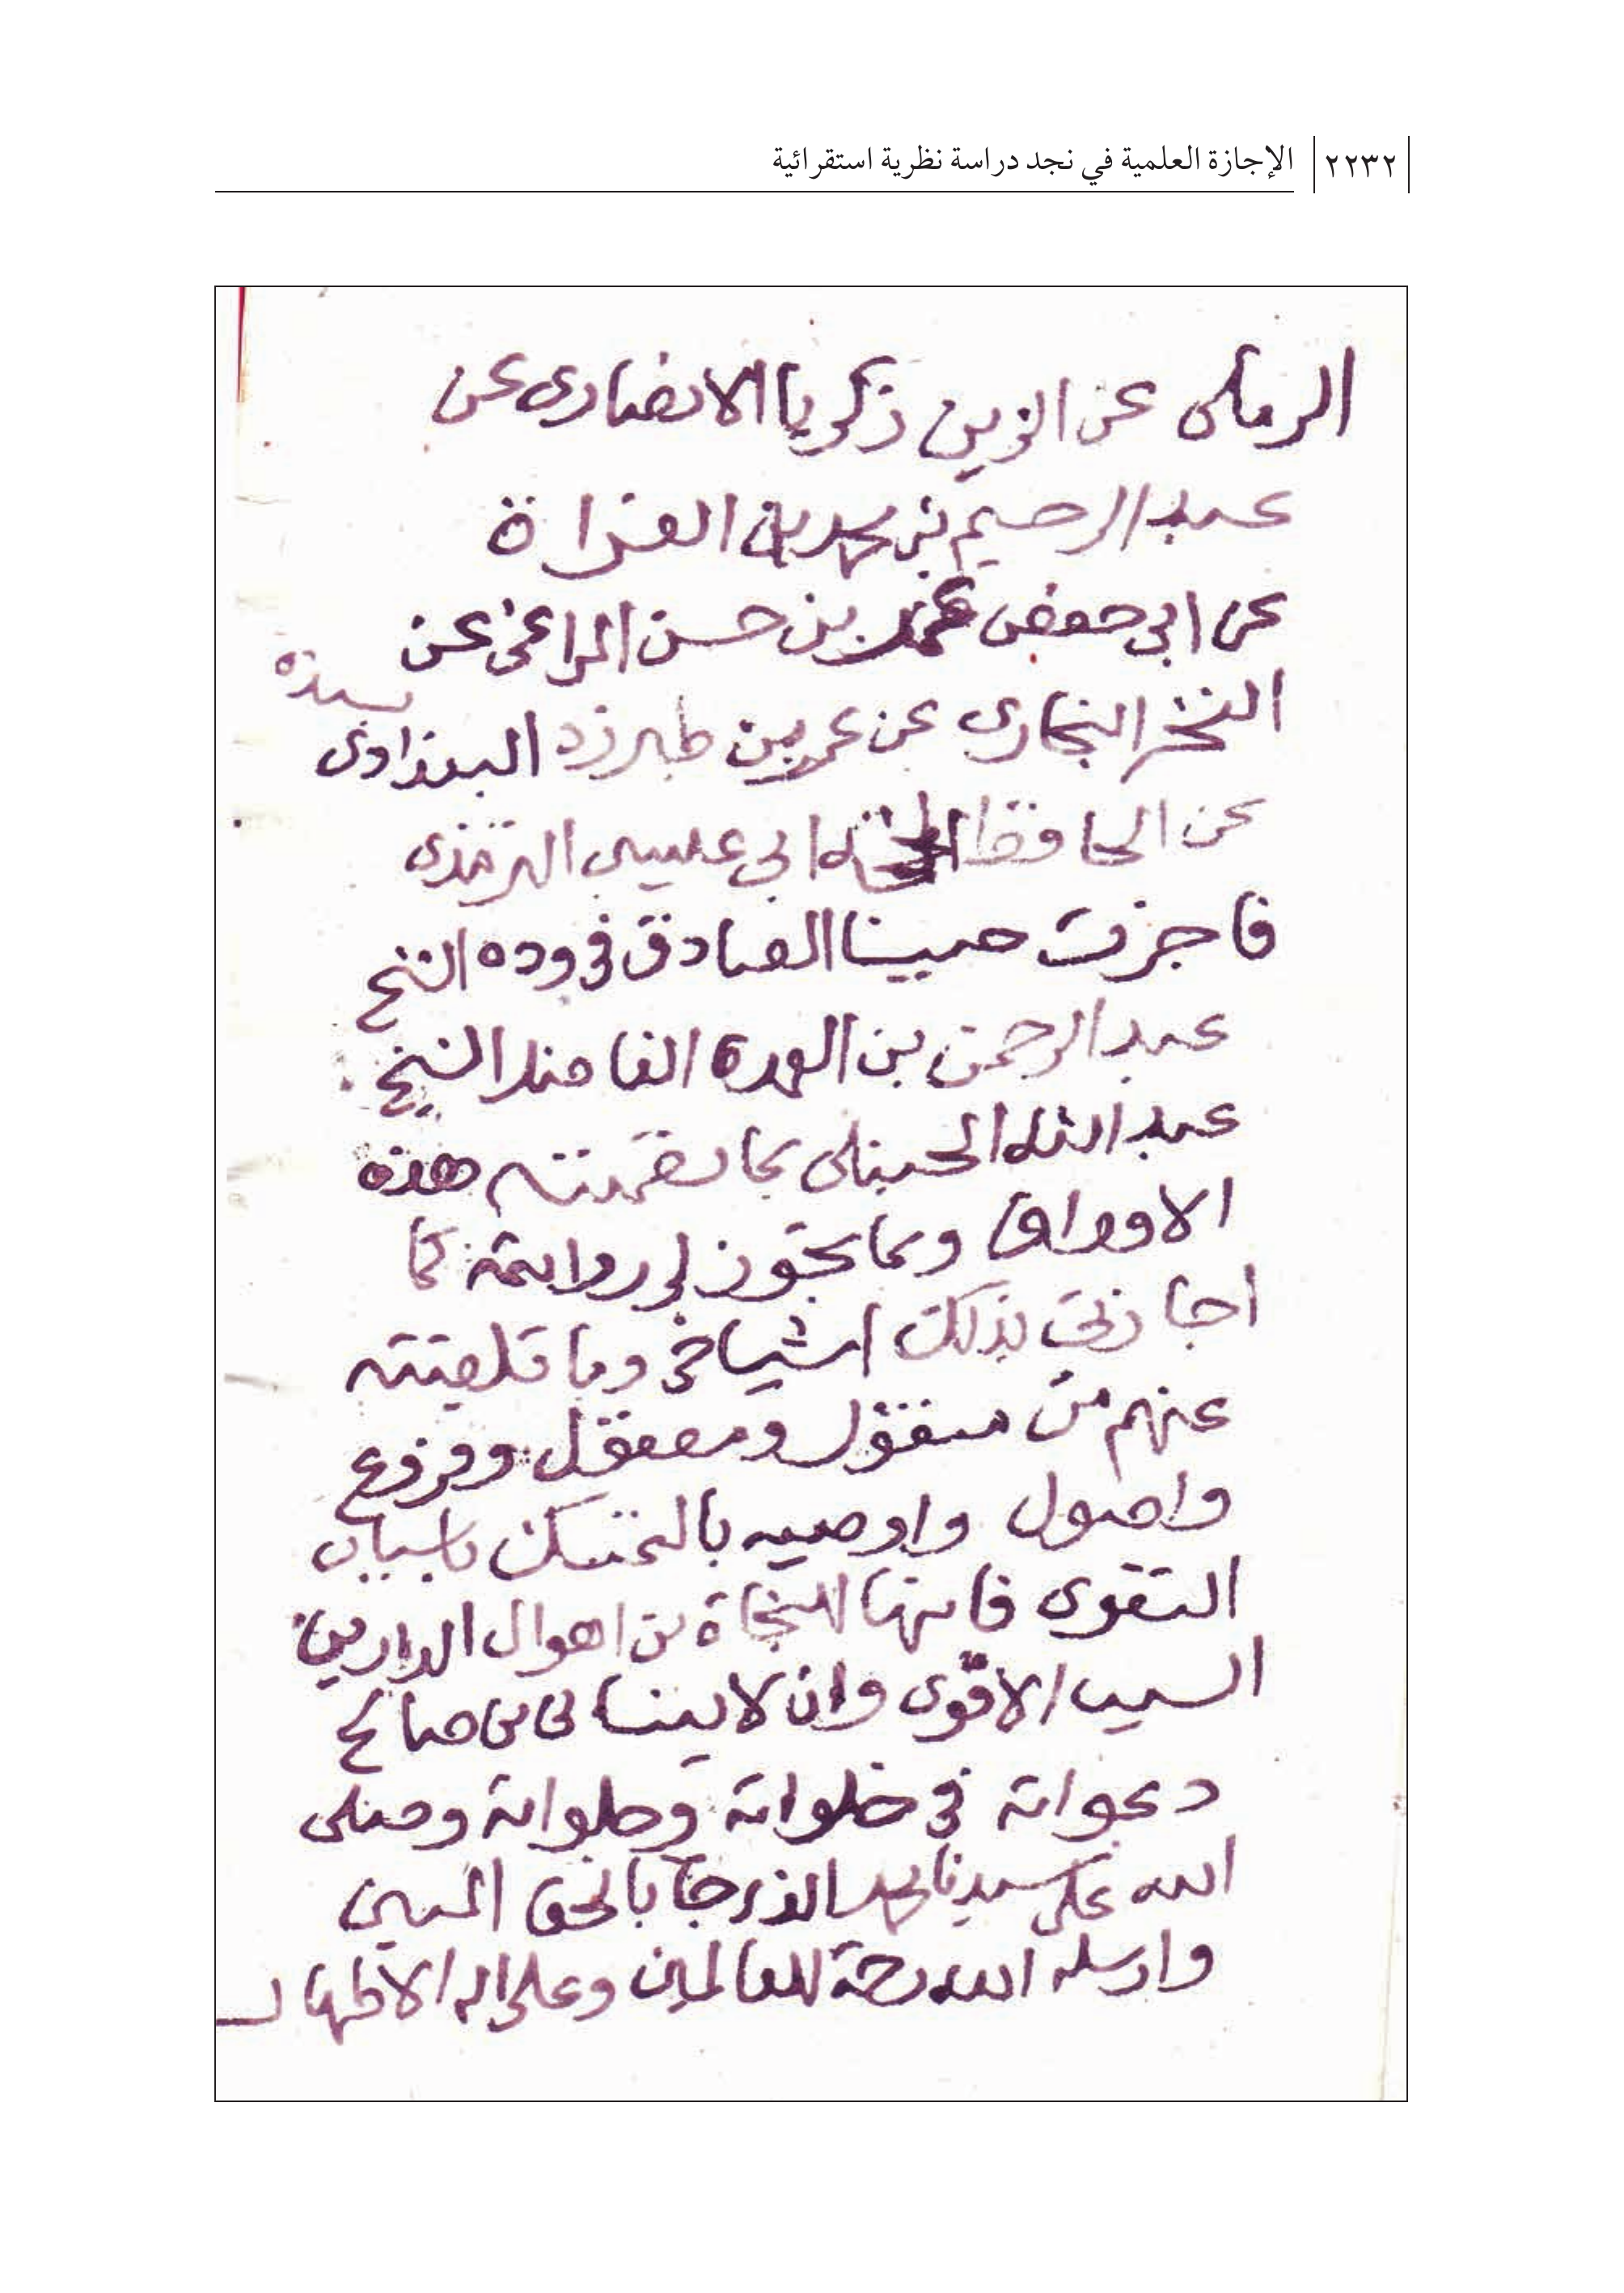 ٢٢٣٢ الإجازة العلمية في نجد دراسة نظرية استقرائية
الرملى عن الزين زكريا الانصارى عن
عبد الرحيم بن محمد بن الفراة
عن ابى حفص عمر بن حسن المراغى عن
الفخر البخارى عن عمر بن طبرزد البغداوى
بسنده
عن الحافظ ابى عيسى الترمذى
فاجزت حبيبنا الصادق فى وده الشيخ
عبد الرحمن بن العمدة الفاضل الشيخ
عبد الله الحنبلى بما تضمنته هذه
الاوراق وبما يجوز لى روايته كما
اجازنى بذلك اشياخى وما تلقيته
عنهم من منقول ومعقول وفروع
واصول واوصيه بالتمسك باسباب
التقوى فانها للنجاة من اهوال الدارين
السبب الاقوى وان لا ينسانى من صالح
دعواته فى خلواته وجلواته وصلى
الله على سيدنا محمد الذى جا بالحق المبين
وارسله الله رحمة للعالمين وعلى اله الاطهار